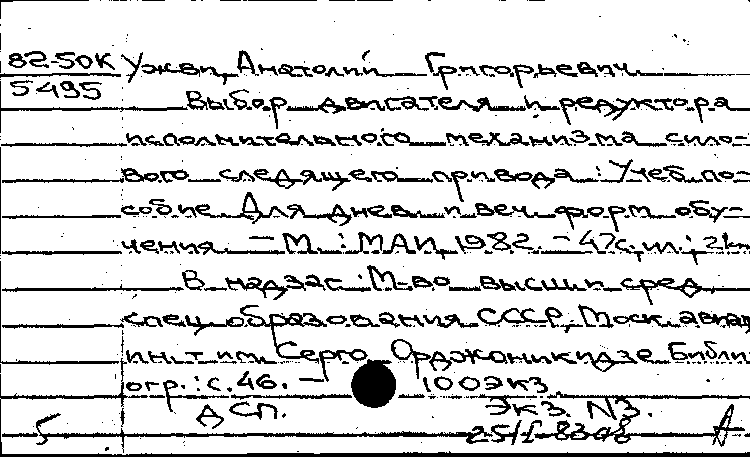 82-50К Ужви, Анатолий Григорьевич.
5495
Выбор двигателя и редуктора
исполнительного механизма сило-
вого следящего привода : Учеб. по-
собие Для днев. и веч. форм обу-
чения. - М. : МАИ, 1982. - 47с., ил.; 21см
В надзаг.: М-во высш. и сред.
спец. образования СССР, Моск. авиац
ин.т им. Серго Орджоникидзе Библи
огр.: с. 46. - 100экз.
ДСП. Экз. N3.
5 25/I-83 А